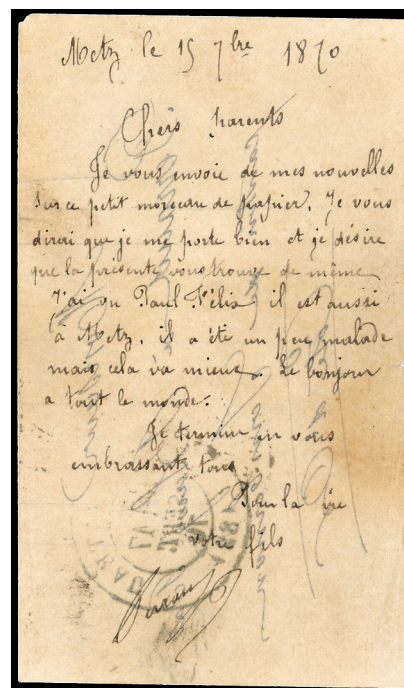 Metz le 15 7bre 1870
Chers parents
Je vous envoie de mes nouvelles
sur ce petit morceau de papier. Je vous
dirai que je me porte bien et je désire
que la présente vous trouve de même
J'ai vu Paul Félix il est aussi
à Metz. il a été un peu malade
mais cela va mieux. Le bonjour
a tout le monde.
Je termine en vous
embrassant tous
Pour la vie
votre fils